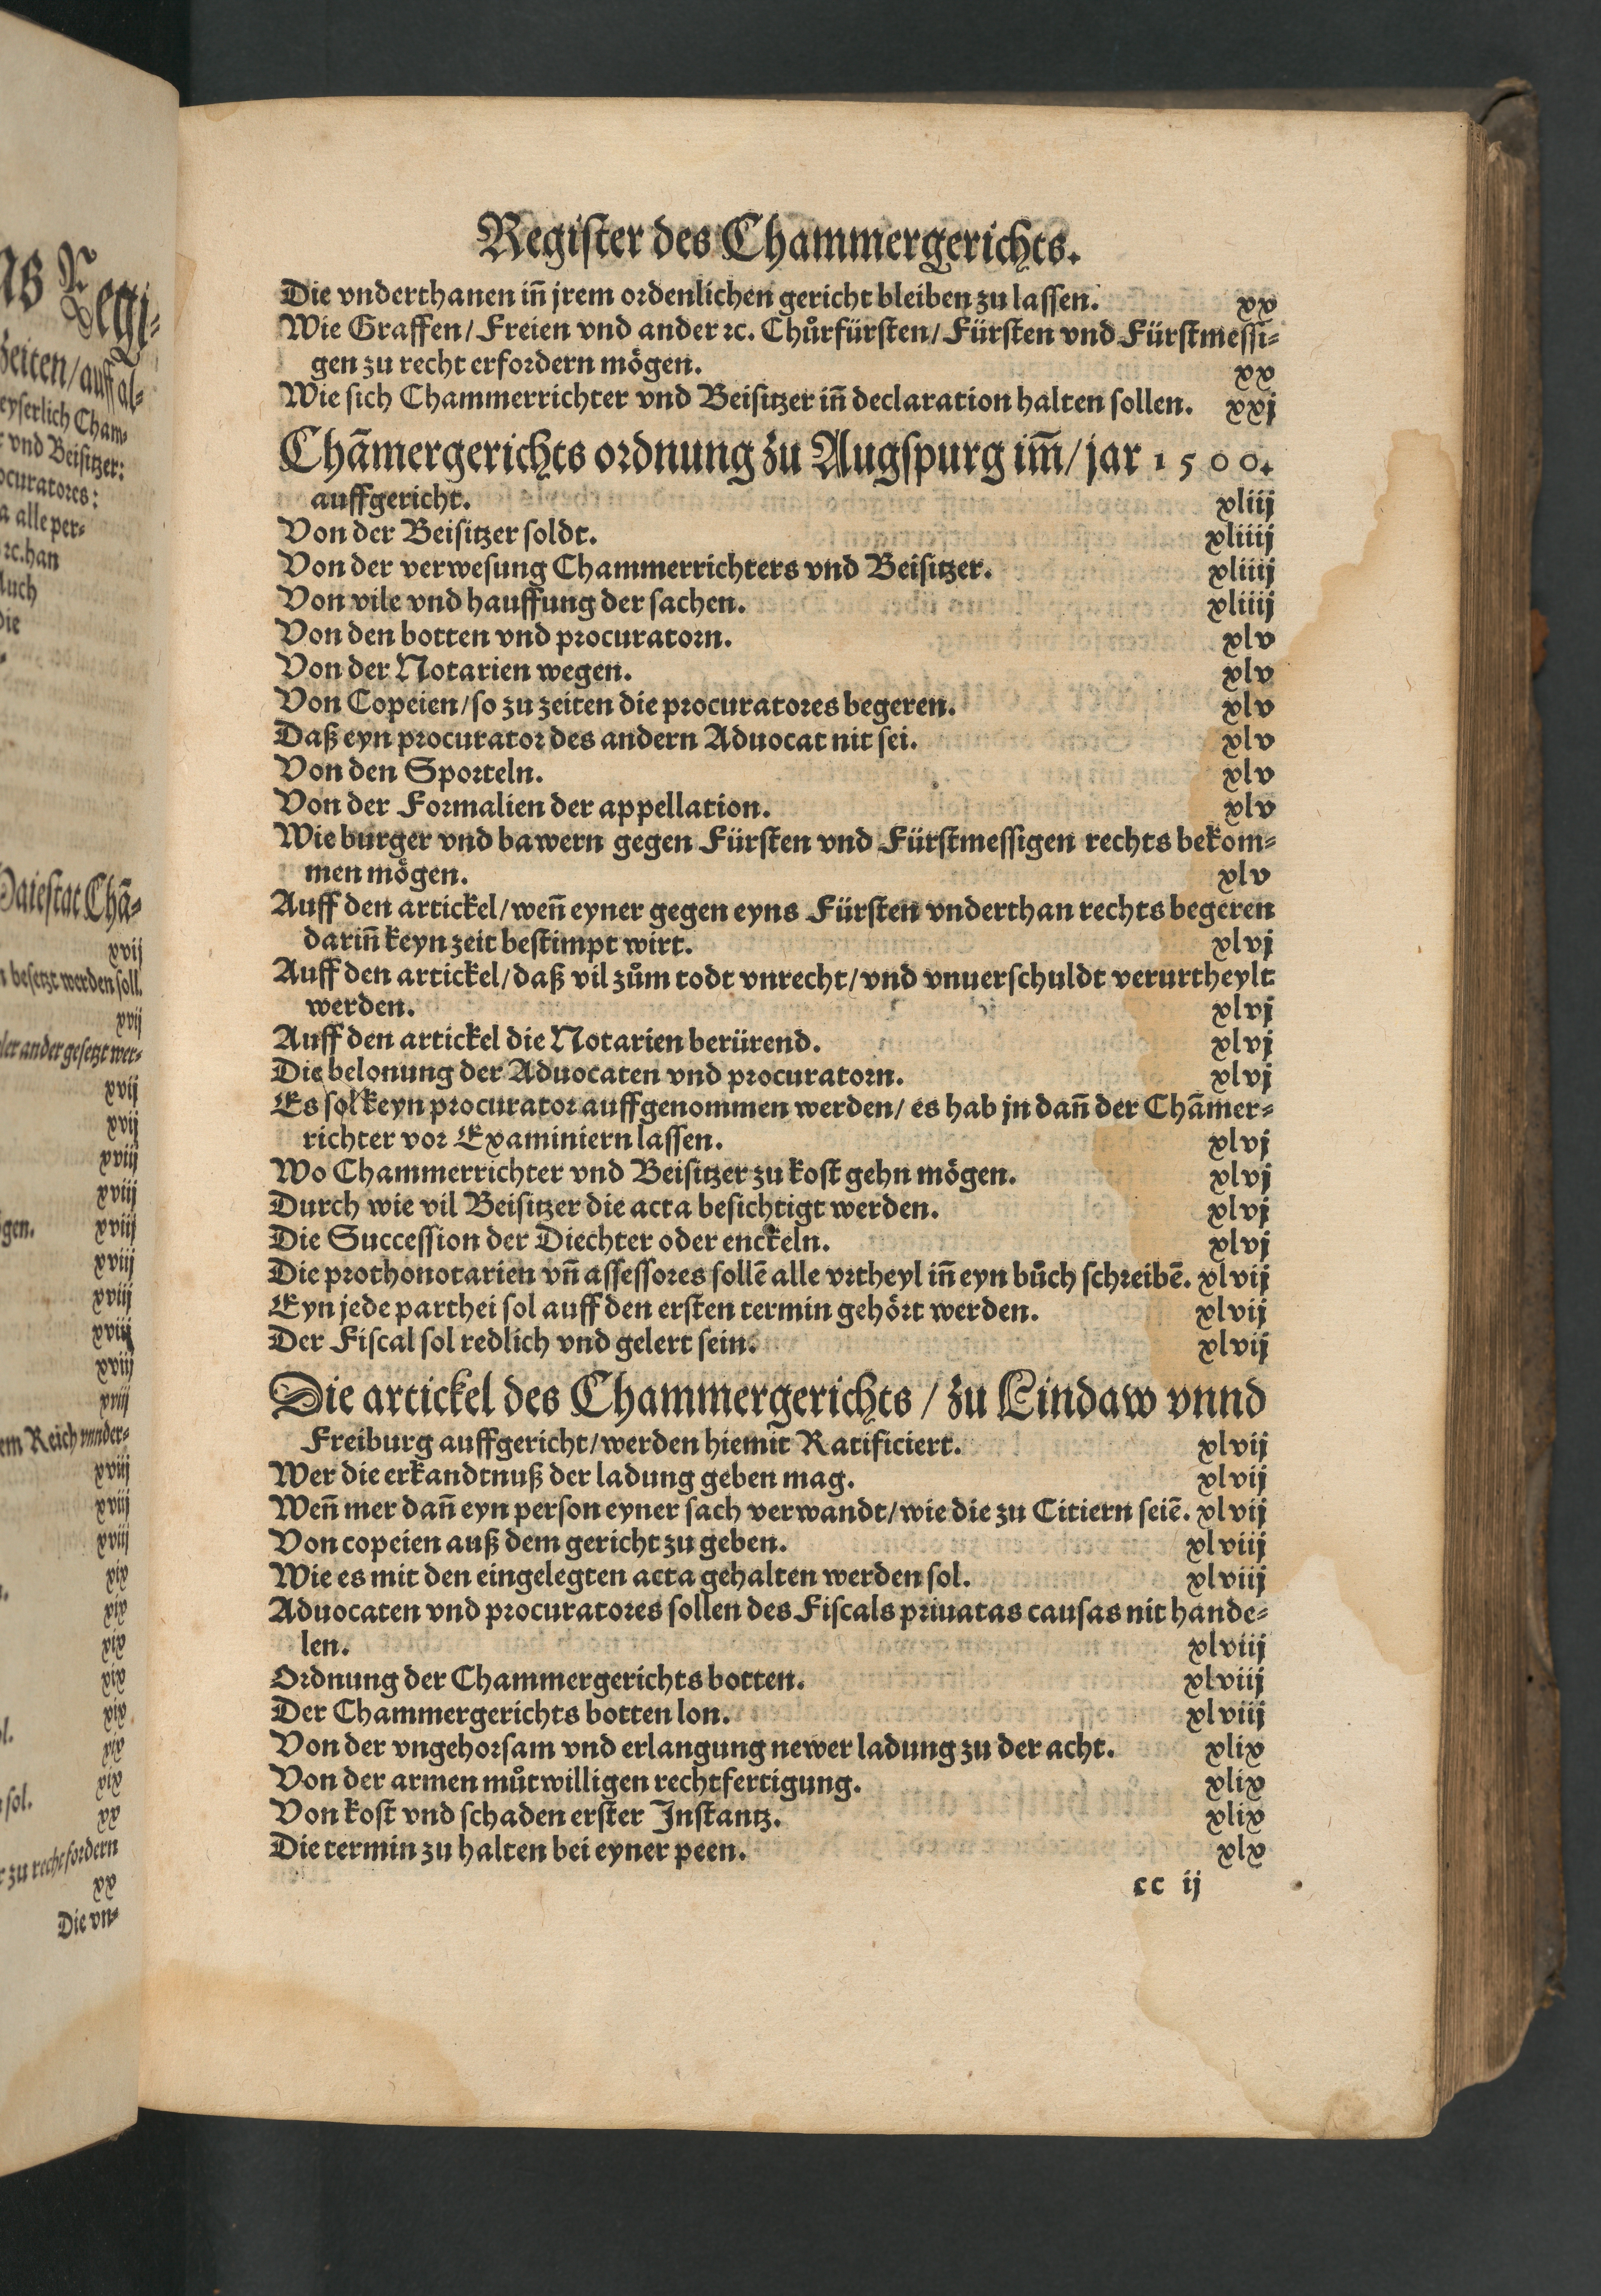 ns Regi-
zeiten/ auff al-
eyserlich Cham-
vnd Beisitzer:
ocuratores:
a alle per-
ꝛc. han
Auch
Die
Maiestat Chā-
xvij
n besetzt werden soll.
xvij
der ander gesetzt wer-
xvij
xvij
xviij
xviij
gen. xviij
xviij
xviij
xviij
xviij
xviij
em Reich vnder-
xviij
xviij
xviij
xix
xix
xix
xix
xix
l. xix
xix
sol. xx
zu recht fordern
xx
Die vn-
Register des Chammergerichts.
Die vnderthanen iñ jrem ordenlichen gericht bleiben zu lassen. xx
Wie Graffen/ Freien vnd ander ꝛc. Chůrfürsten/ Fürsten vnd Fürstmessi-
gen zu recht erfordern mögen. xx
Wie sich Chammerrichter vnd Beisitzer iñ declaration halten sollen. xxj
Chām̄ergerichts ordnung zu Augspurg im̄/ jar 1500.
auffgericht. xliij
Von der Beisitzer soldt. xliiij
Von der verwesung Chammerrichters vnd Beisitzer. xliiij
Von vile vnd hauffung der sachen. xliiij
Von den botten vnd procuratorn. xlv
Von der Notarien wegen. xlv
Von Copeien/ so zu zeiten die procuratores begeren. xlv
Daß eyn procurator des andern Aduocat nit sei. xlv
Von den Sporteln. xlv
Von der Formalien der appellation. xlv
Wie burger vnd bawern gegen Fürsten vnd Fürstmessigen rechts bekom-
men mögen. xlv
Auff den artickel/ weñ eyner gegen eyns Fürsten vnderthan rechts begeren
dariñ keyn zeit bestimpt wirt. xlvj
Auff den artickel/ daß vil zům todt vnrecht/ vnd vnuerschuldt verurtheylt
werden. xlvj
Auff den artickel die Notarien berürend. xlvj
Die belonung der Aduocaten vnd procuratorn. xlvj
Es sol keyn procurator auffgenommen werden/ es hab jn dañ der Chāmer-
richter vor Examiniern lassen. xlvj
Wo Chammerrichter vnd Beisitzer zu kost gehn mögen. xlvj
Durch wie vil Beisitzer die acta besichtigt werden. xlvj
Die Succession der Diechter oder enckeln. xlvj
Die prothonotarien vñ assessores sollē alle vrtheyl iñ eyn bůch schreibē. xlvij
Eyn jede parthei sol auff den ersten termin gehört werden. xlvij
Der Fiscal sol redlich vnd gelert sein. xlvij
Die artickel des Chammergerichts/ zu Lindaw vnnd
Freiburg auffgericht/ werden hiemit Ratificiert. xlvij
Wer die erkandtnuß der ladung geben mag. xlvij
Weñ mer dañ eyn person eyner sach verwandt/ wie die zu Citiern seiē. xlvij
Von copeien auß dem gericht zu geben. xlviij
Wie es mit den eingelegten acta gehalten werden sol. xlviij
Aduocaten vnd procuratores sollen des Fiscals priuatas causas nit hande-
len. xlviij
Ordnung der Chammergerichts botten. xlviij
Der Chammergerichts botten lon. xlviij
Von der vngehorsam vnd erlangung newer ladung zu der acht. xlix
Von der armen můtwilligen rechtfertigung. xlix
Von kost vnd schaden erster Instantz. xlix
Die termin zu halten bei eyner peen. xlx
cc ij